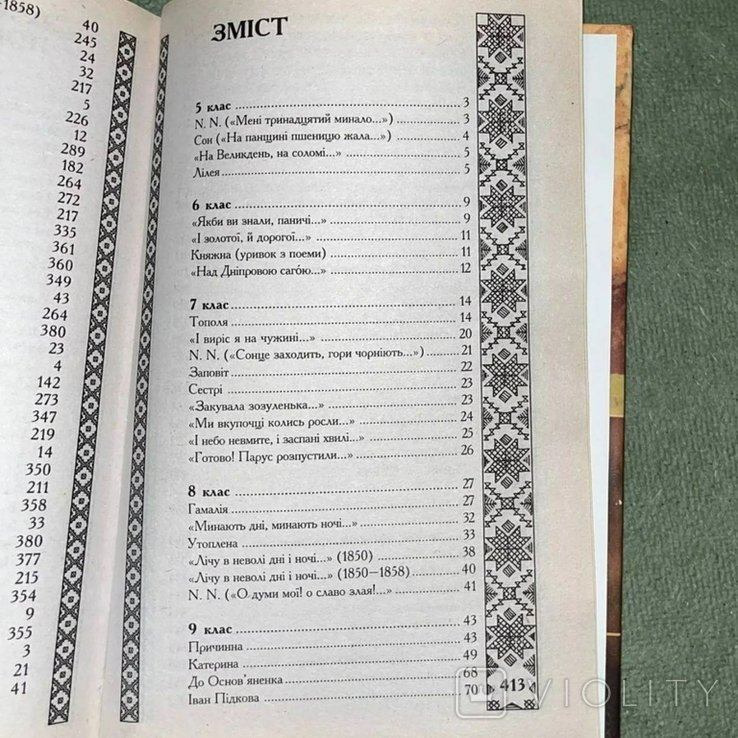 –1858)
40
245
24
32
217
5
226
12
289
182
264
272
217
335
361
360
349
43
264
380
23
4
142
273
347
219
14
350
211
358
33
380
377
215
354
9
355
3
21
41
ЗМІСТ
5 клас 3
N. N. («Мені тринадцятий минало...») 3
Сон («На панщині пшеницю жала...») 4
«На Великдень, на соломі...» 5
Лілея 5
6 клас 9
«Якби ви знали, паничі...» 9
«І золотої, й дорогої...» 11
Княжна (уривок з поеми) 11
«Над Дніпровою саго́ю...» 12
7 клас 14
Тополя 14
«І виріс я на чужині...» 20
N. N. («Сонце заходить, гори чорніють...») 21
Заповіт 22
Сестрі 23
«Закувала зозуленька...» 23
«Ми вкупочці колись росли...» 24
«І небо невмите, і заспані хвилі...» 25
«Готово! Парус розпустили...» 26
8 клас 27
Гамалія 27
«Минають дні, минають ночі...» 32
Утоплена 33
«Лічу в неволі дні і ночі...» (1850) 38
«Лічу в неволі дні і ночі...» (1850–1858) 40
N. N. («О думи мої! о славо злая!...») 41
9 клас 43
Причинна 43
Катерина 49
До Основ'яненка 68
Іван Підкова 70
413
VIOLITY